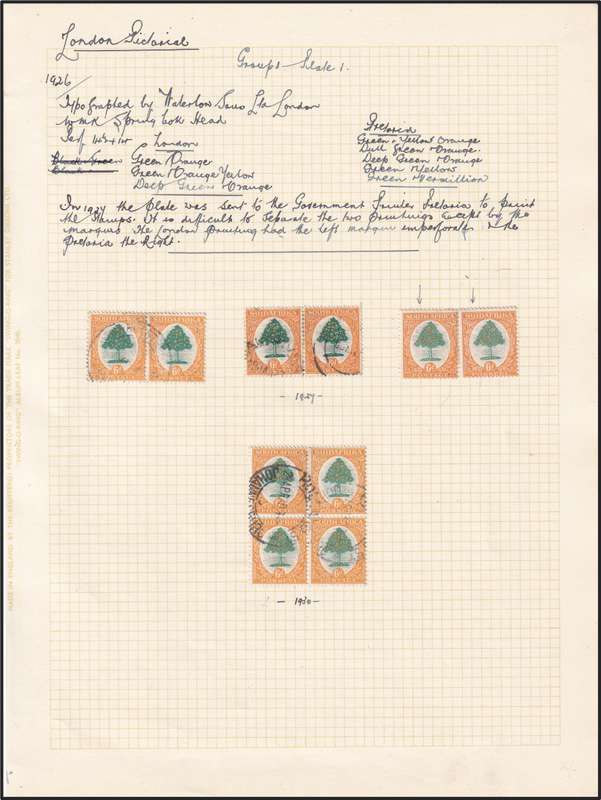 London Pictorial
Group 1 - Plate 1.
1926
Typographed by Waterlow Sons Ltd London
WMK Springbok Head
Perf 14½ x 14
London
Green & Orange
Green & Orange Yellow
Deep Green & Orange
Pretoria
Green & Yellow Orange
Dull Green & Orange.
Deep Green & Orange
Green & Yellow
Green & Vermillion
In 1927 the Plate was sent to the Government Printer Pretoria to print
the stamps. It so difficult to separate the two printings except by the
margins. The London printing had the left margin imperforate & the
Pretoria the Right.
SOUTH AFRICA
- 1927 -
- 1930 -